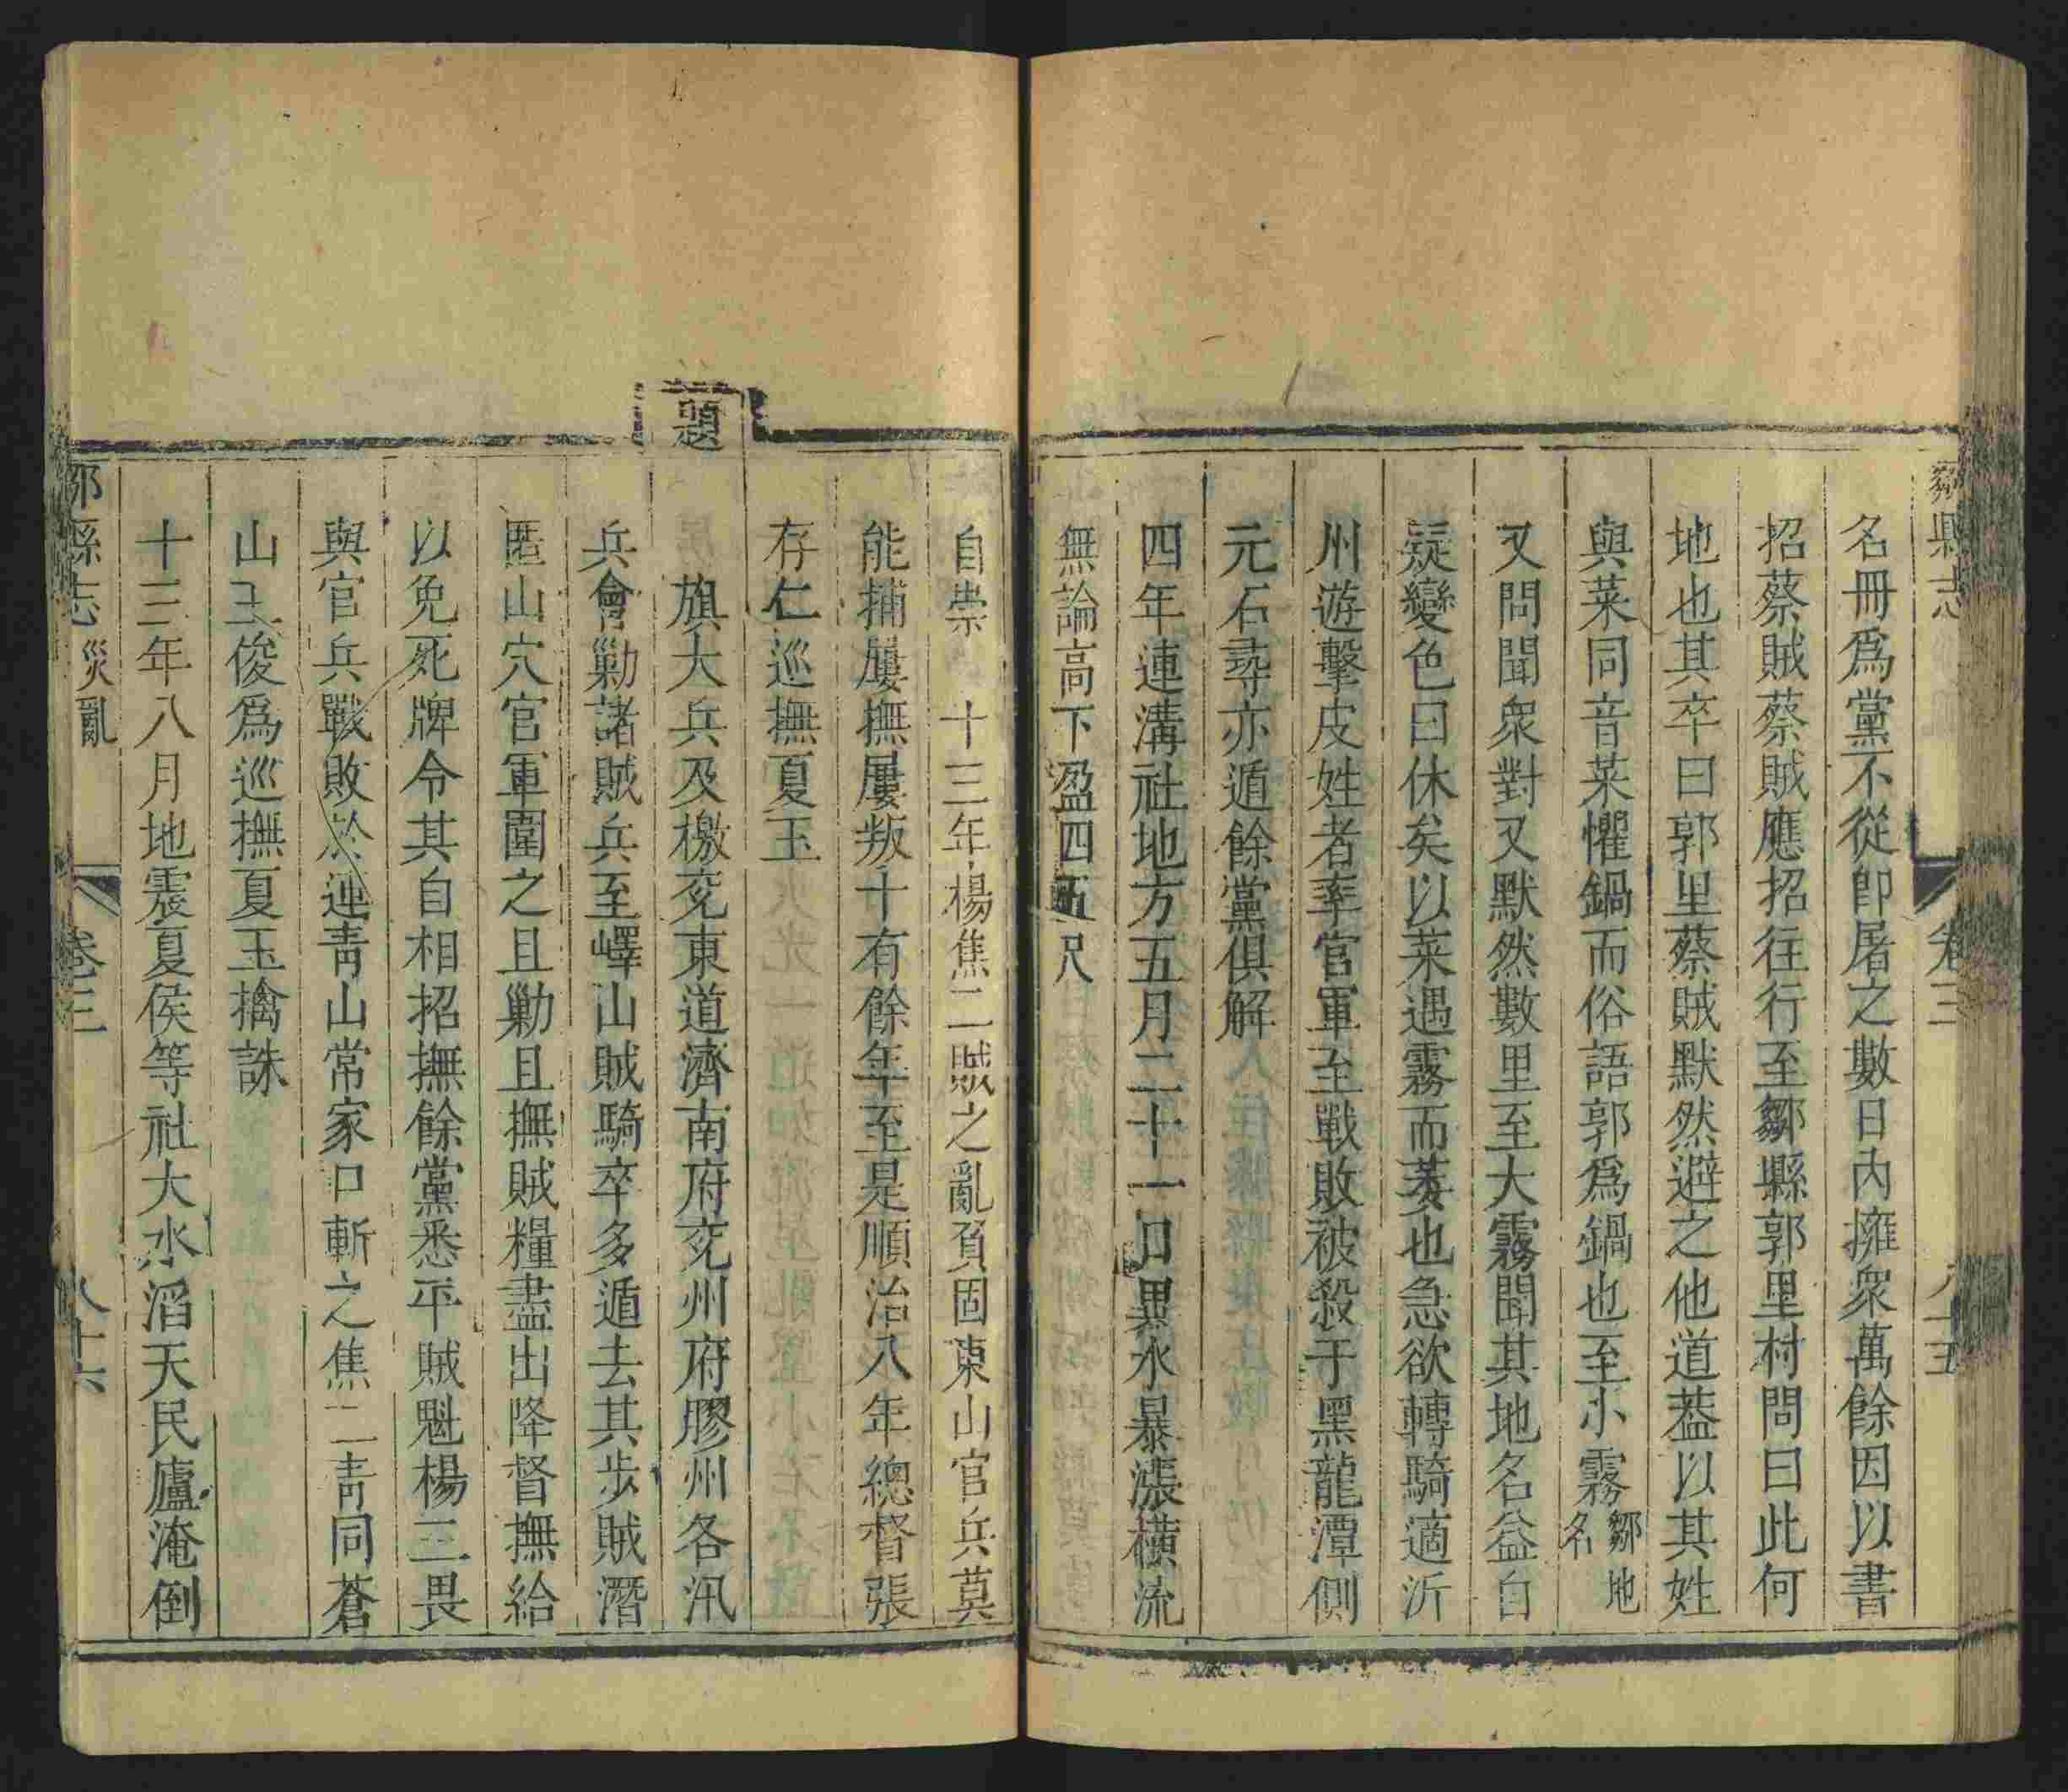 鄒縣志 卷三 八十五
名冊爲黨不從卽屠之數日內擁衆萬餘因以書
招蔡賊蔡賊應招往行至鄒縣郭里村問曰此何
地也其卒曰郭里蔡賊默然避之他道葢以其姓
與菜同音菜懼鍋而俗語郭爲鍋也至小霧鄒地名
又問聞衆對又默然數里至大霧聞其地名益自
疑變色曰休矣以菜遇霧而萎也急欲轉騎適沂
州遊擊皮姓者率官軍至戰敗被殺于黑龍潭側
元石尋亦遁餘黨俱解
四年連溝社地方五月二十一日異水暴漲橫流
無論高下盈四五尺
自崇 十三年楊焦二賊之亂負固東山官兵莫
能捕屢撫屢叛十有餘年至是順治八年總督張
存仁巡撫夏玉
題
旗大兵及檄兖東道濟南府兖州府膠州各汛
兵會勦諸賊兵至嶧山賊騎卒多遁去其步賊潛
匿山穴官軍圍之且勦且撫賊糧盡出降督撫給
以免死牌令其自相招撫餘黨悉平賊魁楊三畏
與官兵戰敗於蓮青山常家口斬之焦二青同蒼
山王俊爲巡撫夏玉擒誅
十三年八月地震夏侯等社大水滔天民廬淹倒
鄒縣志 災亂 卷三 八十六